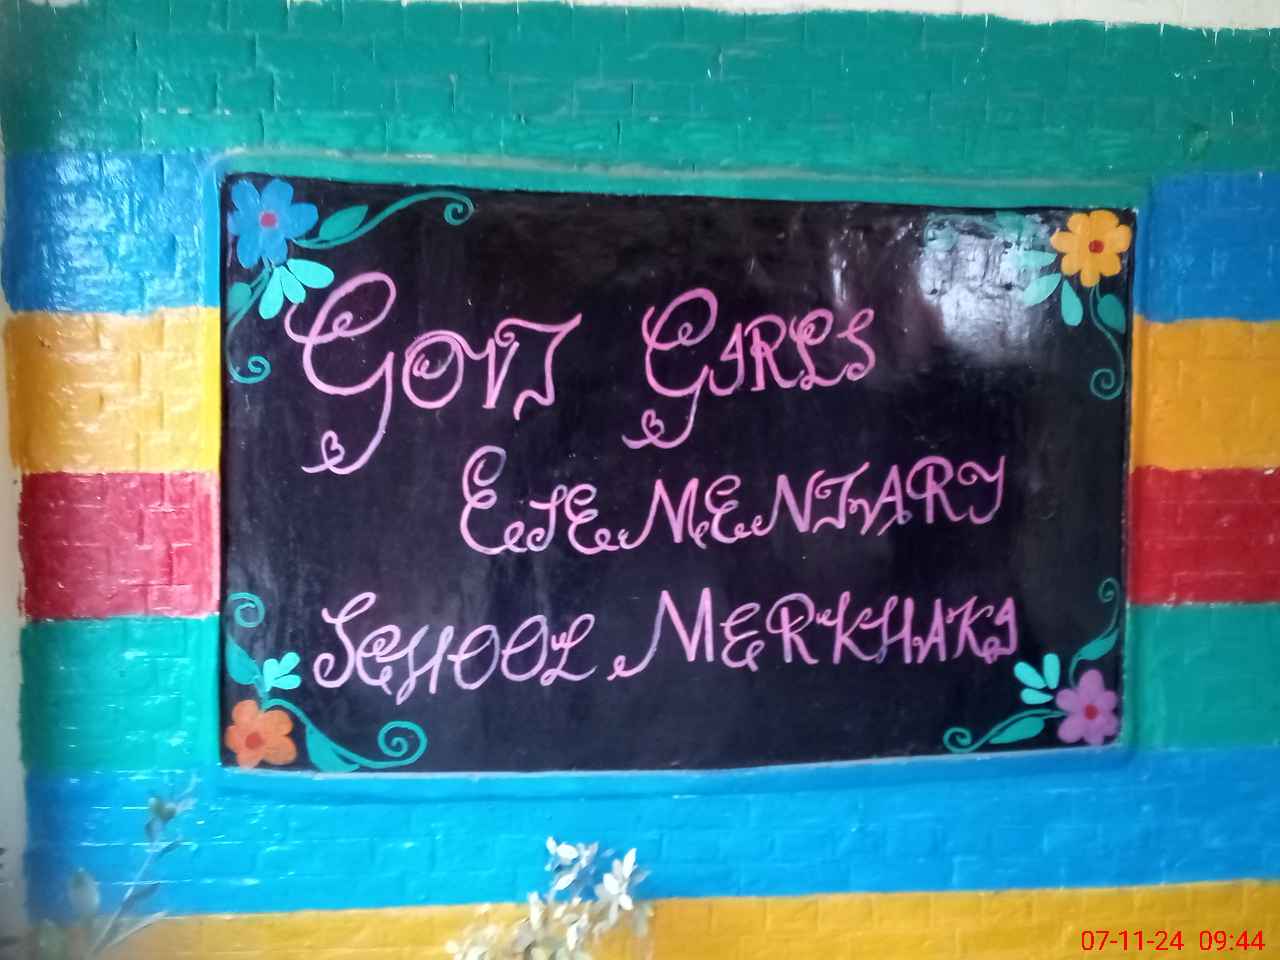 GOVT GIRLS
ELEMENTARY
SCHOOL MERKHAKI
07-11-24 09:44